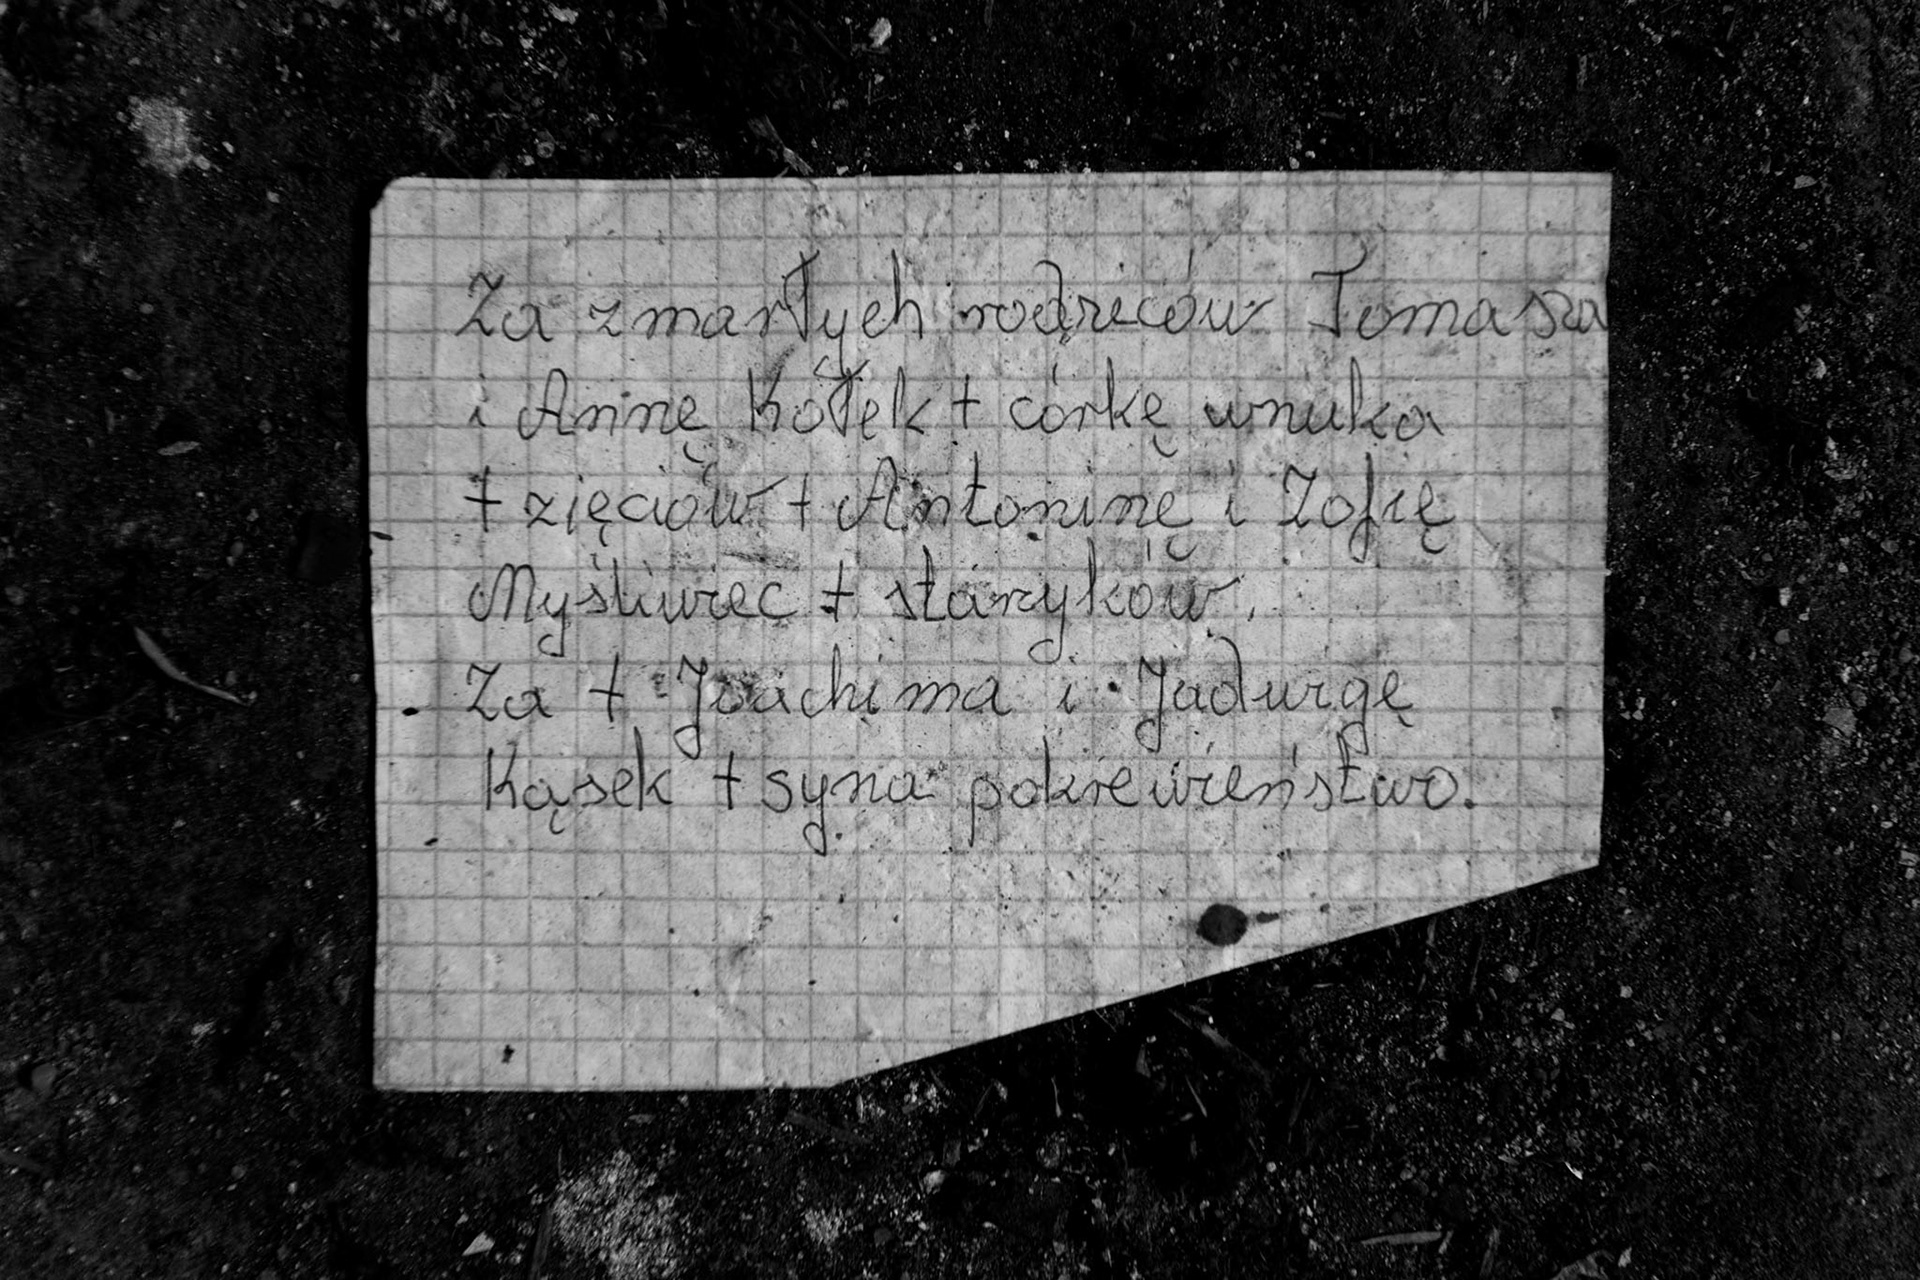 Za zmarłych rodziców Tomasza
i Annę Kołek + córkę wnuka
+ zięciów + Antoninę i Zofię
Myśliwiec + starzyków.
Za + Joachima i Jadwigę
Kąsek + syna pokrewieństwo.